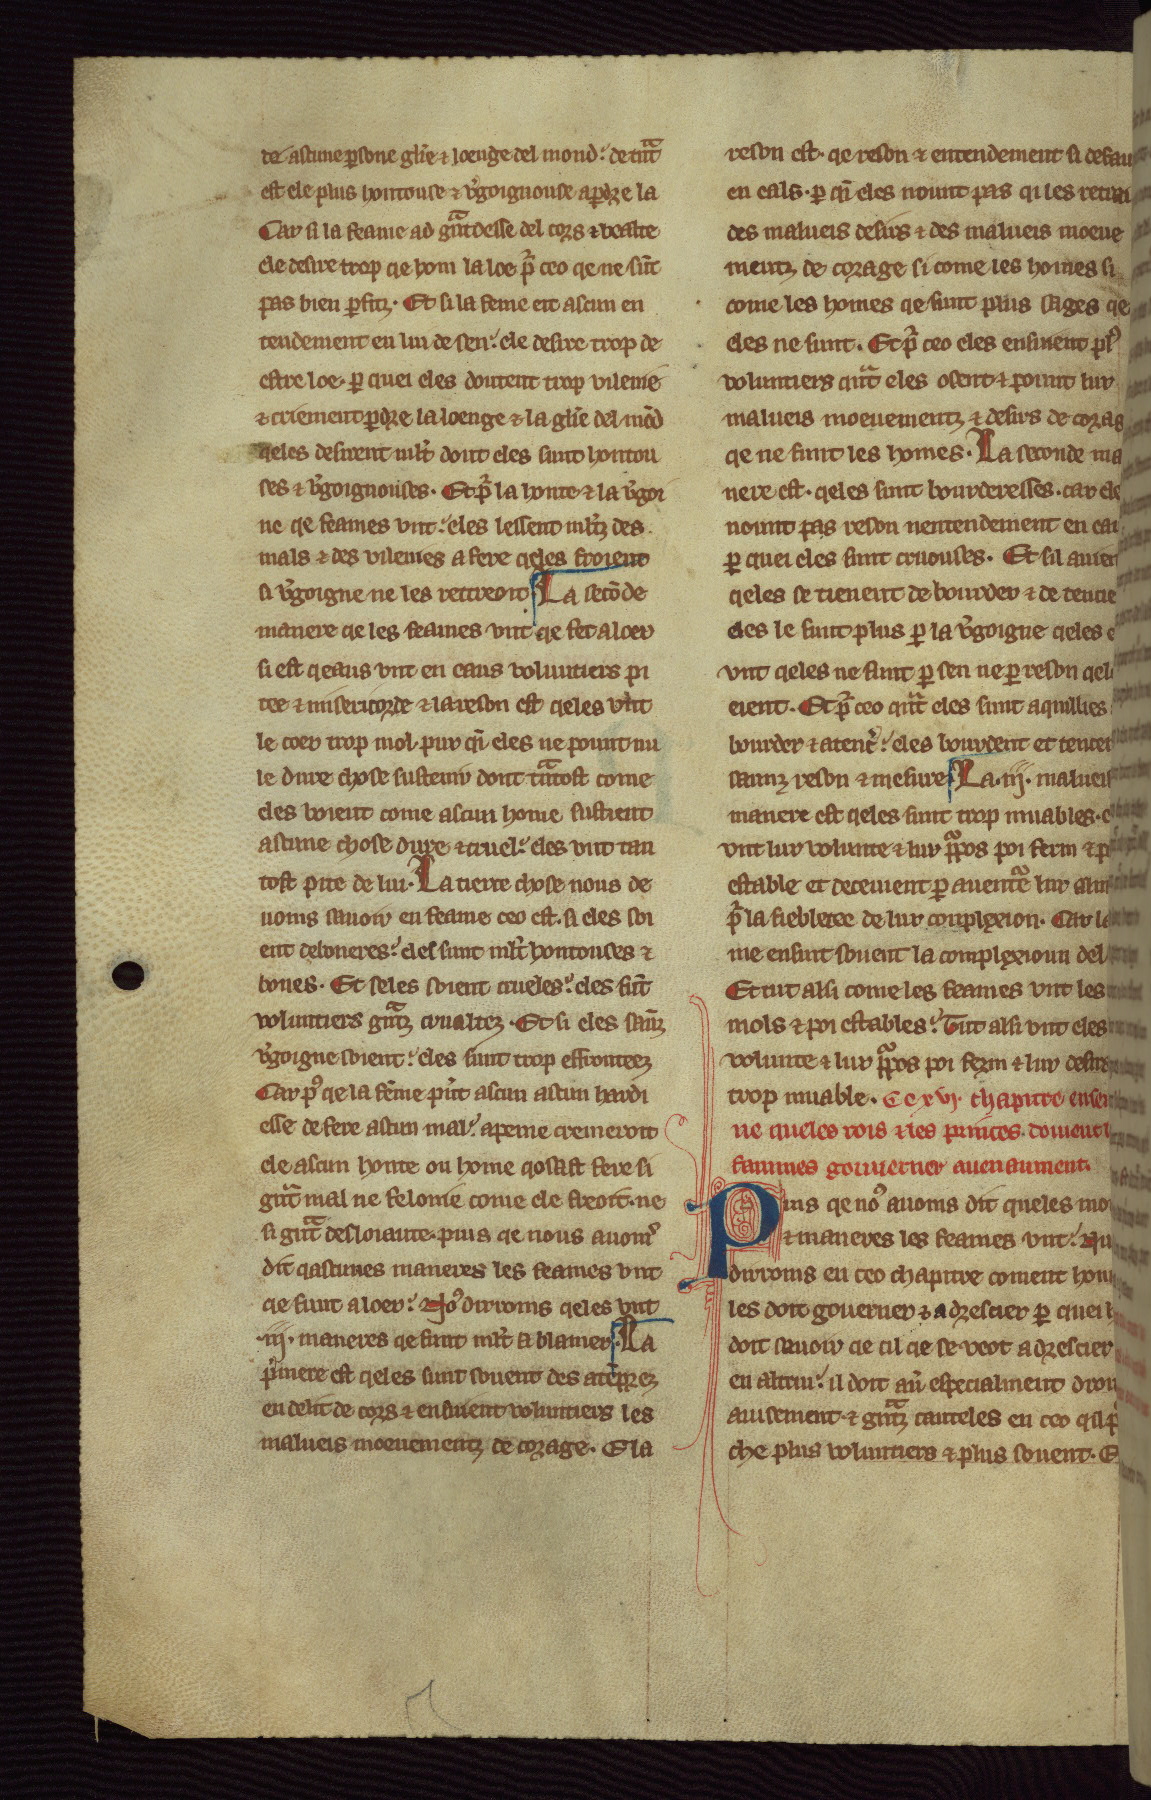 de ascune ꝑsone gl̃ie ⁊ loenge del mond. de tant
est ele plus hontouse ⁊ v̾goignouse a ꝑdre la
Car si la feame ad gᵃntdesse del cors ⁊ beaste
ele desire trop qe hom la loe pᵉ ceo qe ne sũt
pas bien ꝑfitz. Et si la feme eit ascun en
tendement en lui de sen. ele desire trop de
estre loe. ꝑ quei eles doutent trop vilenie
⁊ criement ꝑdre la loenge ⁊ la gl̃ie del mõd
qeles desirent ml̃t dont eles sunt hontou
ses ⁊ v̾goignouses. Et pᵉ la honte ⁊ la v̾goi
ne qe feames vnt. eles lessent ml̃tz des
mals ⁊ des vilenies a fere qeles froient
si v̾goigne ne les retreoit La secõde
manere qe les feames vnt qe fet a loer
si est qeaus vnt en eaus voluntiers pi
tee ⁊ misericorde ⁊ la reson est qeles vnt
le coer trop mol. pur qi eles ne pount nu
le dure chose sustenir dont tᵃntost come
eles voient come ascun home sustient
ascune chose dure ⁊ cruel. eles vnt tan
tost pite de lui. La tierce chose nous de
uoms sauoir en feame ceo est. si eles soi
ent deboneres. eles sunt ml̃t hontouses ⁊
bones. Et seles soient crueles. eles sũt
voluntiers gᵃntz crualtez. Et si eles sañz
v̾goigne soient. eles sunt trop effronteez
Car pᵒ qe la fẽme pͥt ascun ascun hardi
esse de fere ascun mal. a peine cremeroit
ele ascun honte ou home qosast fere si
gᵃnt mal ne felonie come ele froit. ne
si gᵃnt desloiaute. puis qe nous auomᵒ
dit qascunes maneres les feames vnt
qe sunt a loer. Noᵒ dirroms qeles vnt
.iij. maneres qe sunt ml̃t a blamer. La
pͥmere est qeles sunt souent des atẽprez
en delit de cors ⁊ ensuient voluntiers les
malueis moeuementz de corage. E la
reson est. qe reson ⁊ entendement si defau
en eals. ꝑ qi eles nount pas qi les
des malueis desirs ⁊ des malueis moeue
mentz de corage si come les homes si
come les homes qe sunt plus sages qe
eles ne sunt. Et pᵉ ceo eles ensuient plᵒ
voluntiers qᵃnt eles osent ⁊ pount lur
malueis moeuementz ⁊ desirs de corag
qe ne sunt les homes. La seconde ma
nere est. qeles sunt bourderesses. car ele
nount pas reson nentendement en
ꝑ quei eles sunt cruouses. Et sil
qeles se tienent de bourder ⁊ de tencie
eles le sunt plus ꝑ la v̾goigne qeles
vnt qeles ne sunt ꝑ sen ne ꝑ reson
eient. Et pᵉ ceo qᵃnt eles sunt aquillies
bourder ⁊ a tenc̾. eles bourdent et
saunz reson ⁊ mesure La .iij. malueis
manere est qeles sunt trop muables.
vnt lur volunte ⁊ lur ppᵒos poi ferm ⁊
estable et deceiuent ꝑ auentᵉe lur
pᵉ la fieblece de lur complexion. Car
me ensuit souent la complexioun del
Et tut alsi come les feames vnt les
mols ⁊ poi estables. Tut alsi vnt eles
volunte ⁊ lur ppᵒos poi ferm ⁊ lur desirs
trop muable. Ce xvj. chapitre ensei
ne queles rois ⁊ les princes doiuent
fammes gouuerner auenaument.
Puis qe noᵒ auoms dit queles
⁊ maneres les feames vnt.
dirroms en ceo chapitre coment
les doit gouerner ⁊ adrescier ꝑ quei
doit sauoir qe cil qe se veot adrescier
en altrui. il doit auͥ especialment
auisement. ⁊ gᵃntz cauteles en ceo
che plus voluntiers ⁊ plus souent.